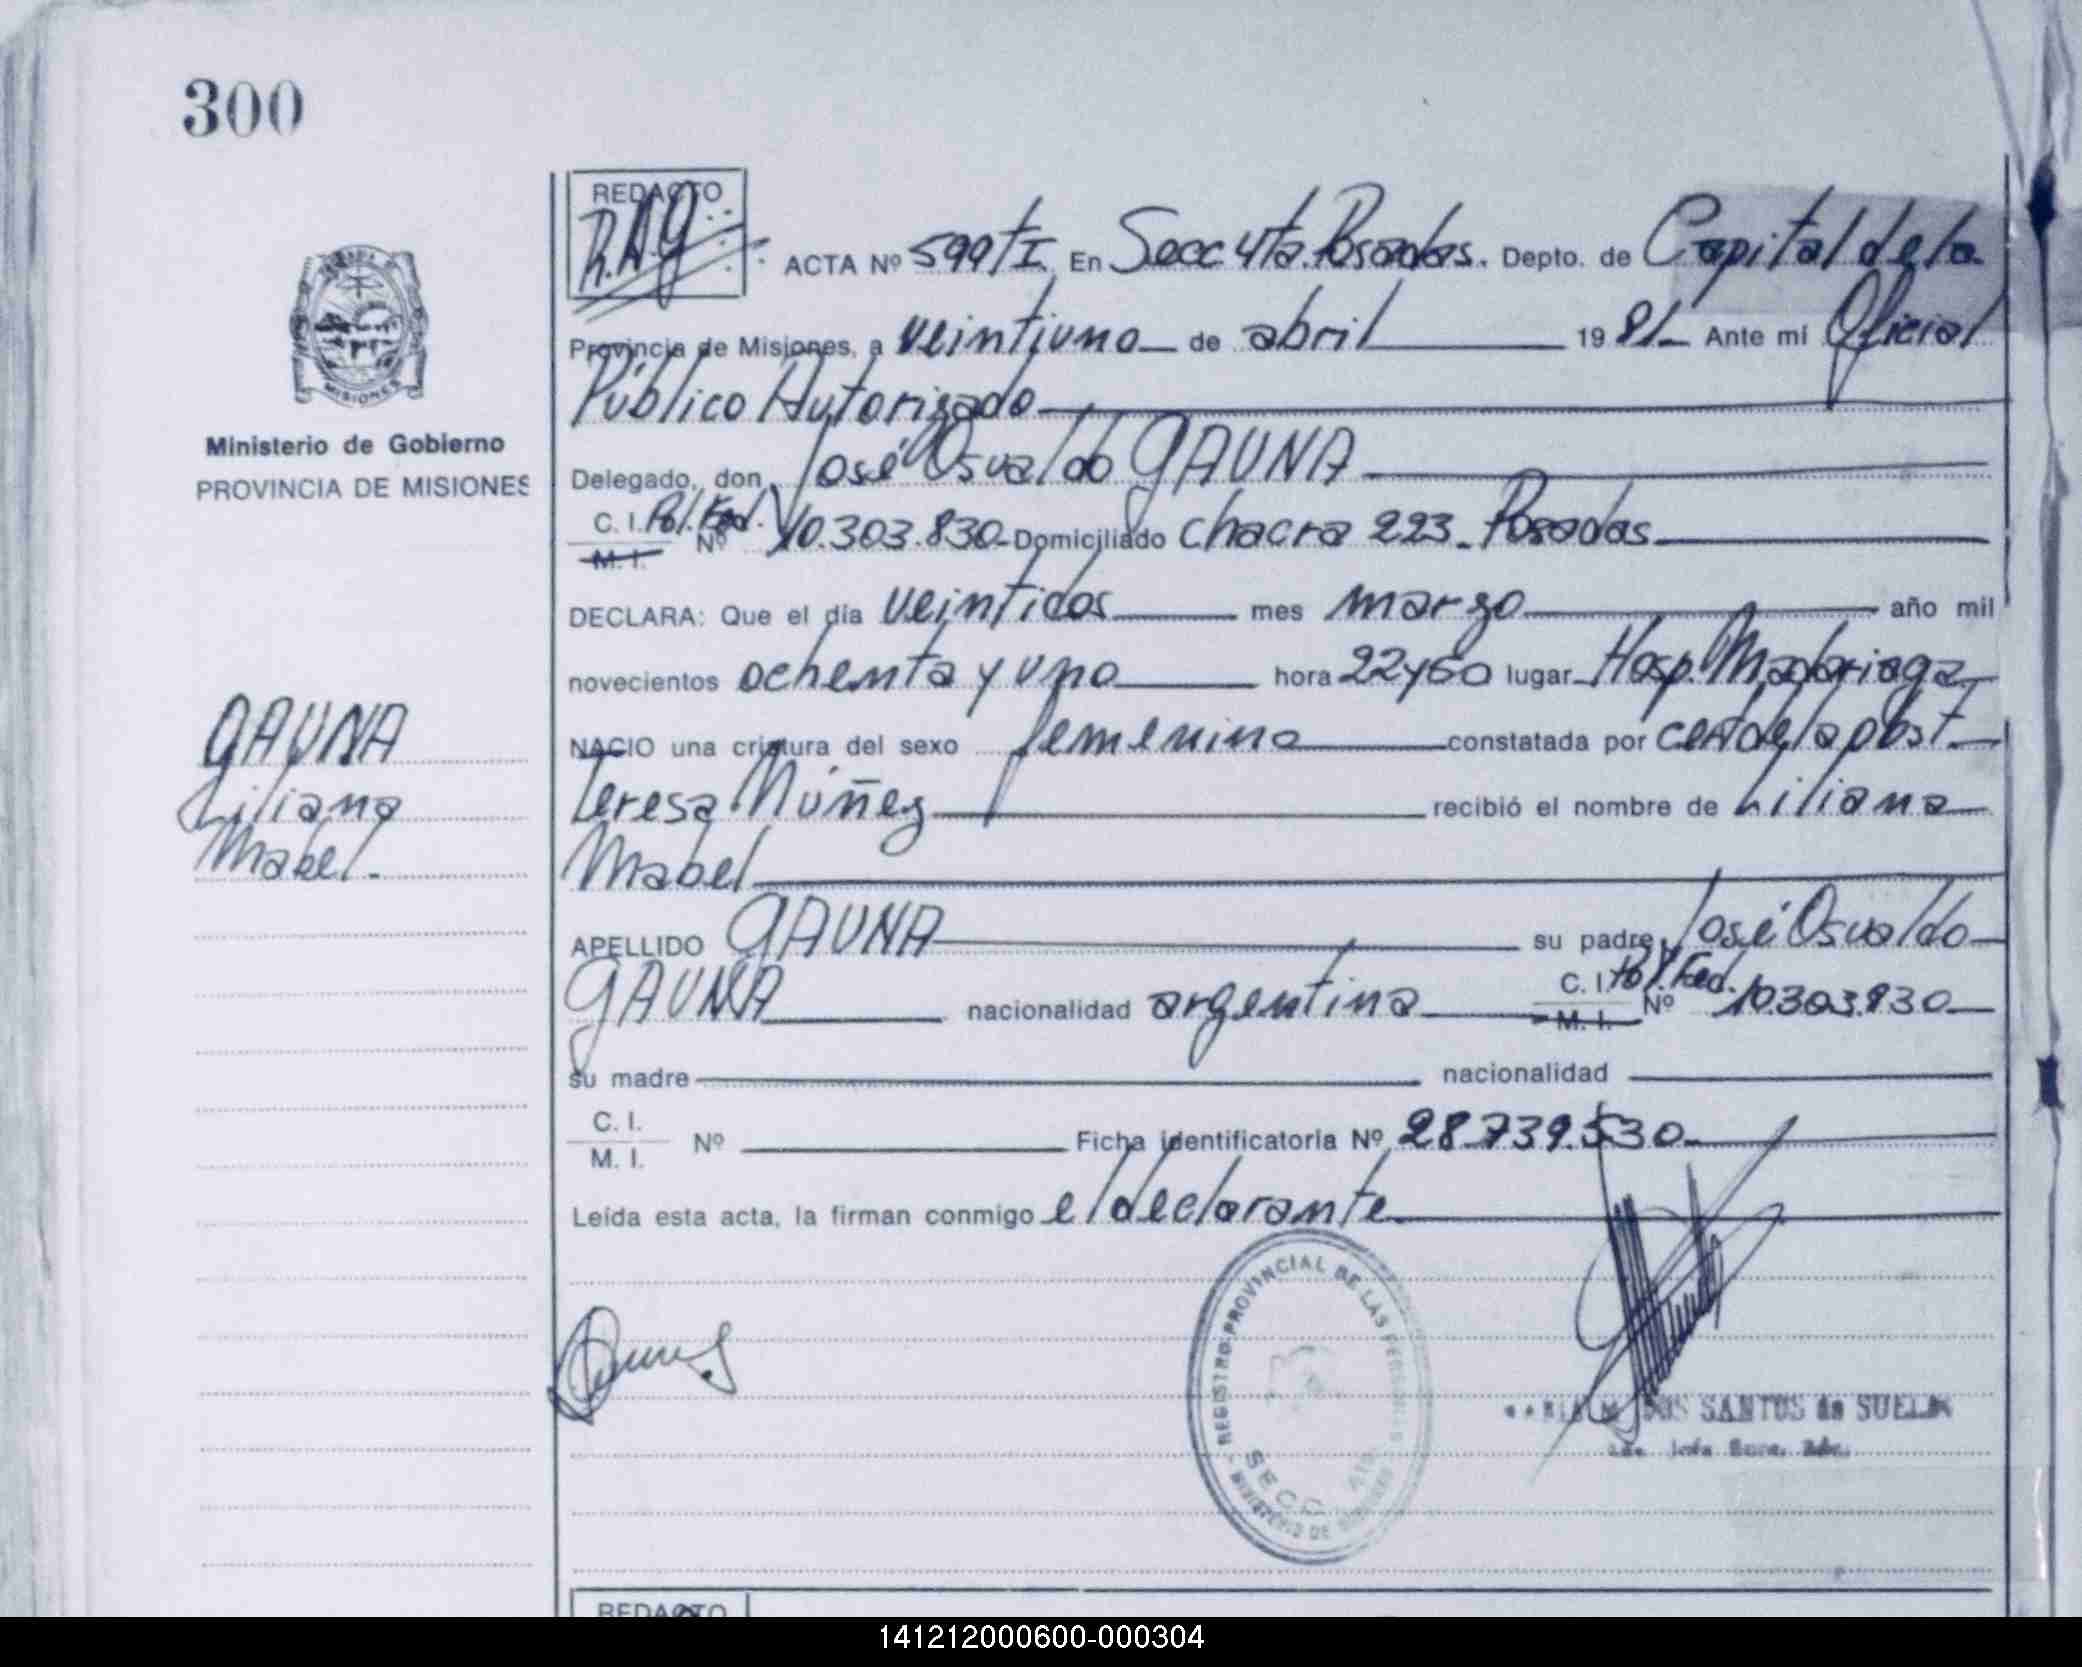 300
REDACTO
R.A.G
ACTA Nº 599 tI En Secc 4ta. Posadas. Depto. de Capital de la
Provincia de Misiones, a veintiuno de abril 1981 Ante mi Oficial
Público Autorizado
Ministerio de Gobierno
PROVINCIA DE MISIONES
MISIONES
Delegado, don José Osvaldo GAUNA
C. I. Pol. Fed. M. I. Nº 10.303.830 Domiciliado chacra 223. Posadas
DECLARA: Que el día veintidos mes marzo año mil
novecientos ochenta y uno hora 22y50 lugar Hosp. Madariaga
NACIO una criatura del sexo femenino constatada por cert de la obst.
Teresa Núñez recibió el nombre de Liliana
Mabel
GAUNA
Liliana
Mabel.
APELLIDO GAUNA su padre José Osvaldo
GAUNA nacionalidad argentina C. I. Pol. Fed. M. I. Nº 10.303.830
su madre nacionalidad
C. I. M. I. Nº Ficha identificatoria Nº 28.739.530
Leída esta acta, la firman conmigo el declarante
REGISTRO PROVINCIAL DE LAS PERSONAS
SECC 4ta
MINISTERIO DE GOBIERNO
DOS SANTOS de SUELDO
REDACTO
141212000600-000304